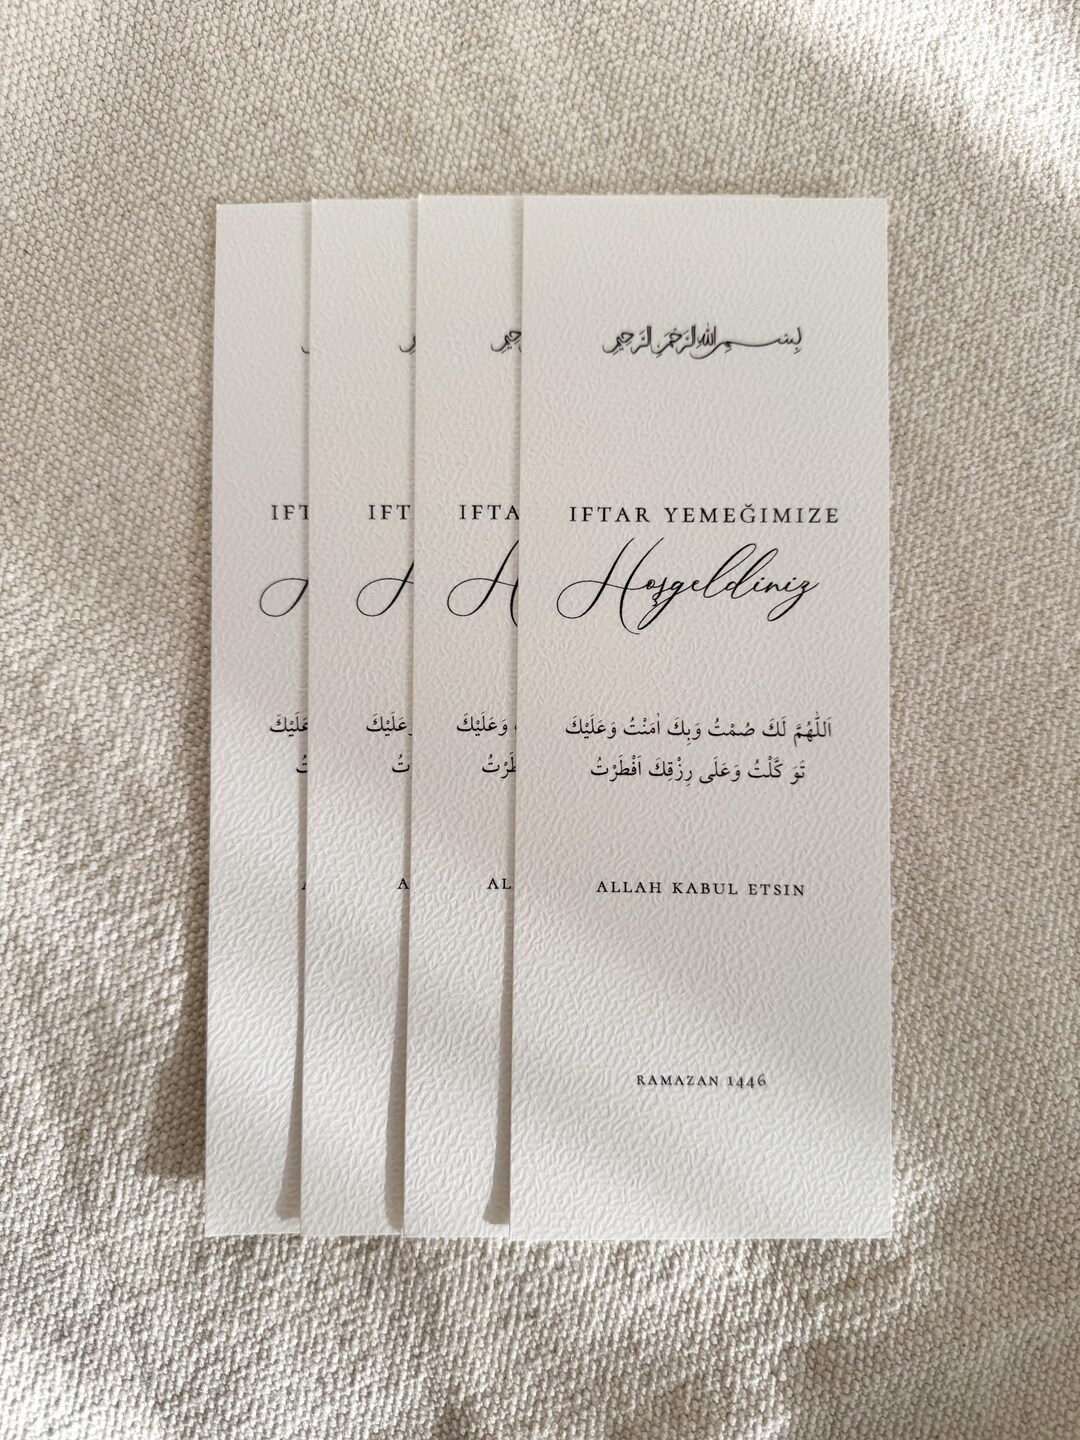 بِسْمِ اللهِ الرَّحْمٰنِ الرَّحِيمِ
IFTAR YEMEĞIMIZE
Hoşgeldiniz
اَللّٰهُمَّ لَكَ صُمْتُ وَبِكَ اٰمَنْتُ وَعَلَيْكَ
تَوَ كَّلْتُ وَعَلَى رِزْقِكَ اَفْطَرْتُ
ALLAH KABUL ETSIN
RAMAZAN 1446